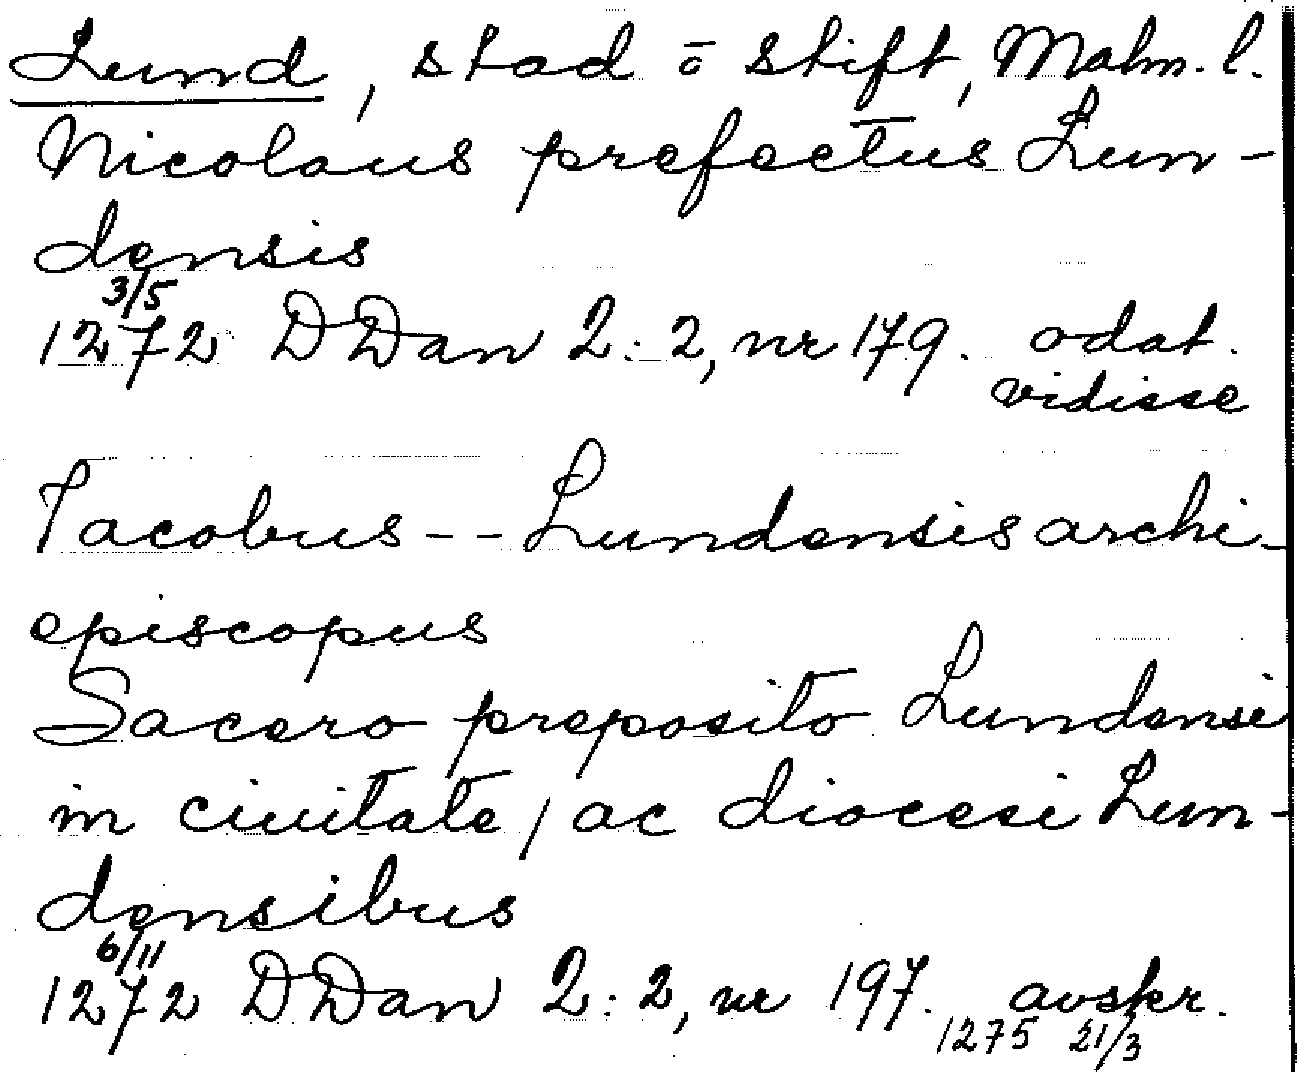 Lund, stad ō stift, Malm. l.
Nicolaus prefectus Lun-
densis
3/5
1272 DDan 2:2, nr 179. odat.
vidisse
Iacobus -- Lundensis archi-
episcopus
Sacero preposito Lundensi
in ciuitate, ac diocesi Lun-
densibus
6/11
1272 DDan 2:2, nr 197. avskr.
1275 21/3